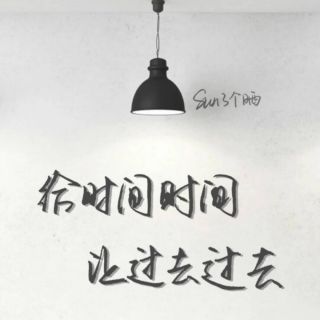 Sun3个晒
给时间时间
让过去过去